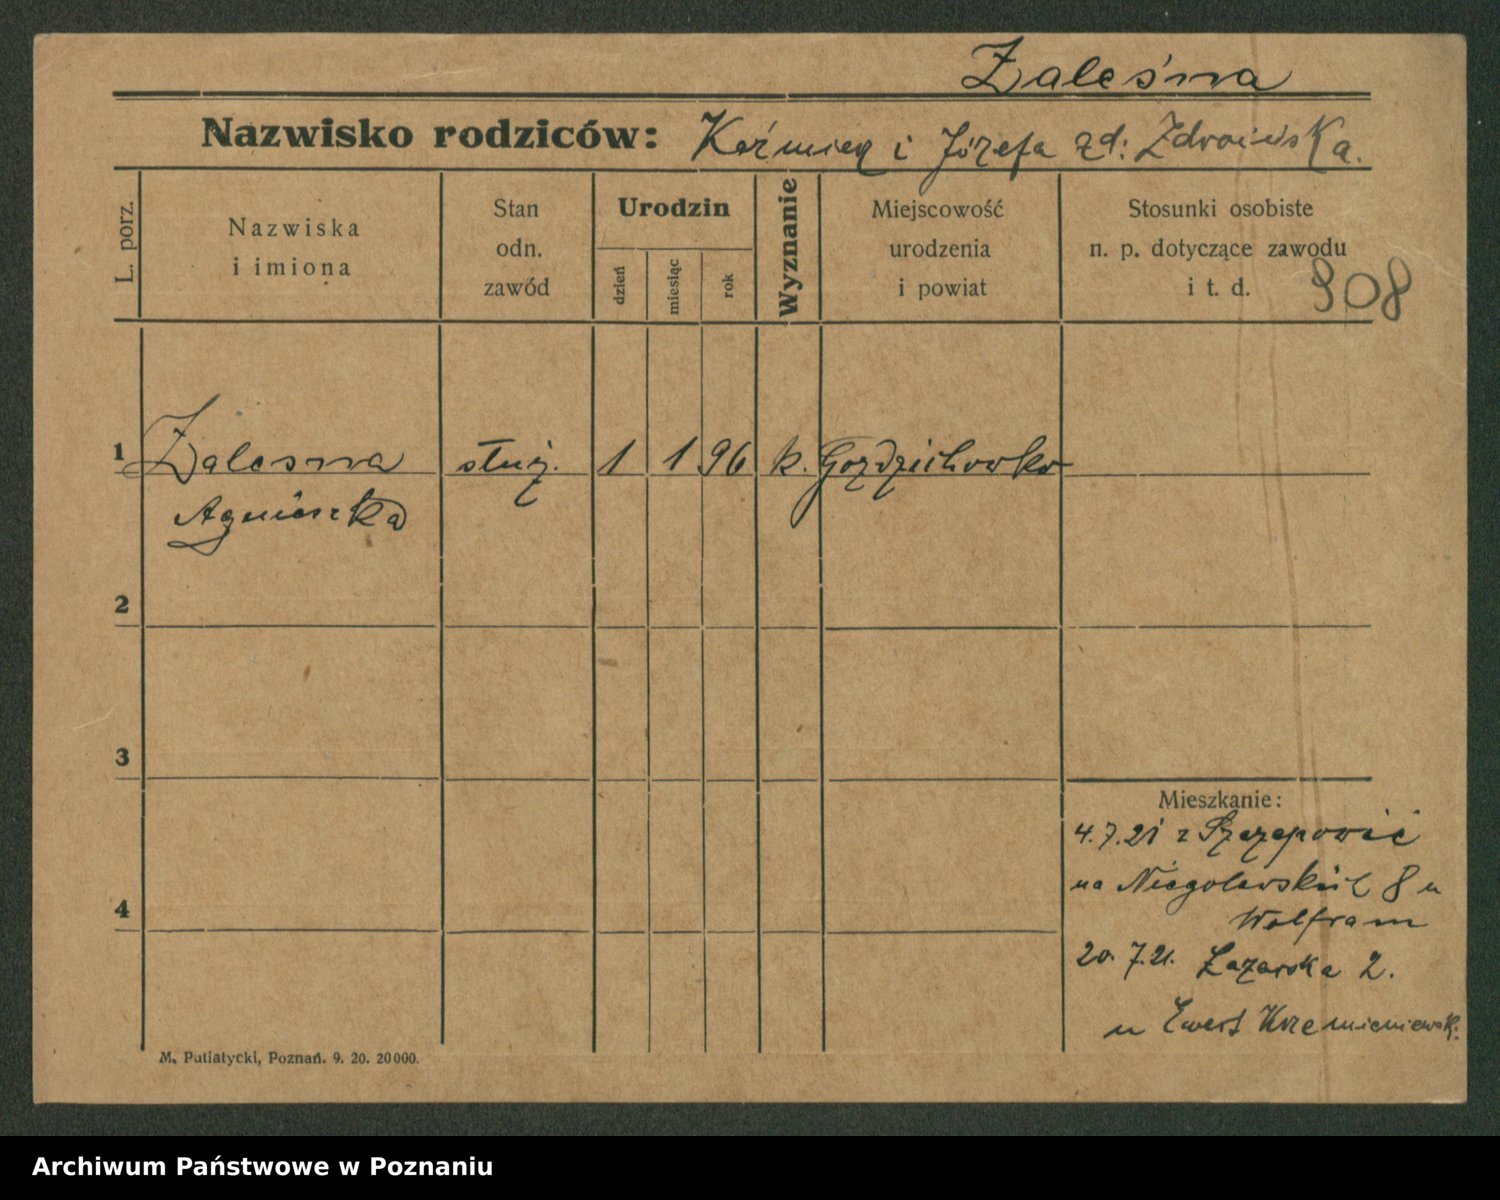 Zaleśna
Nazwisko rodziców: Kaźmierz i Józefa zd: Zdroińska.
L. porz.
Nazwiska
i imiona
Stan
odn.
zawód
Urodzin
dzień
miesiąc
rok
Wyznanie
Miejscowość
urodzenia
i powiat
Stosunki osobiste
n. p. dotyczące zawodu
i t. d.
908
1 Zalesna służ. 1 1 96 k. Gozdzichowko
Agnieszka
2
3
4
Mieszkanie:
4.7.21 z Szczepowic
na Niegolewskich 8 u
Wolfram
20.7.21. Łazarska 2.
u Ewert Krzemieniewsk.
M. Putiatycki, Poznań. 9. 20. 20000.
Archiwum Państwowe w Poznaniu